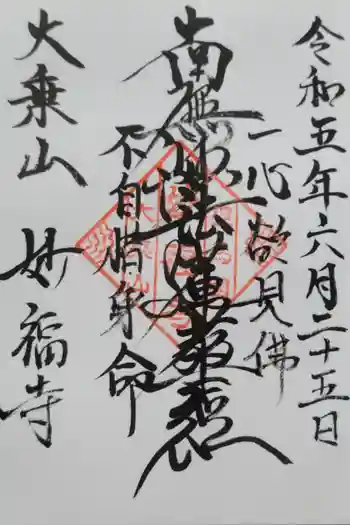 令和五年六月二十五日
一心欲見佛
南無妙法蓮華経
不自惜身命
大乗山 妙福寺